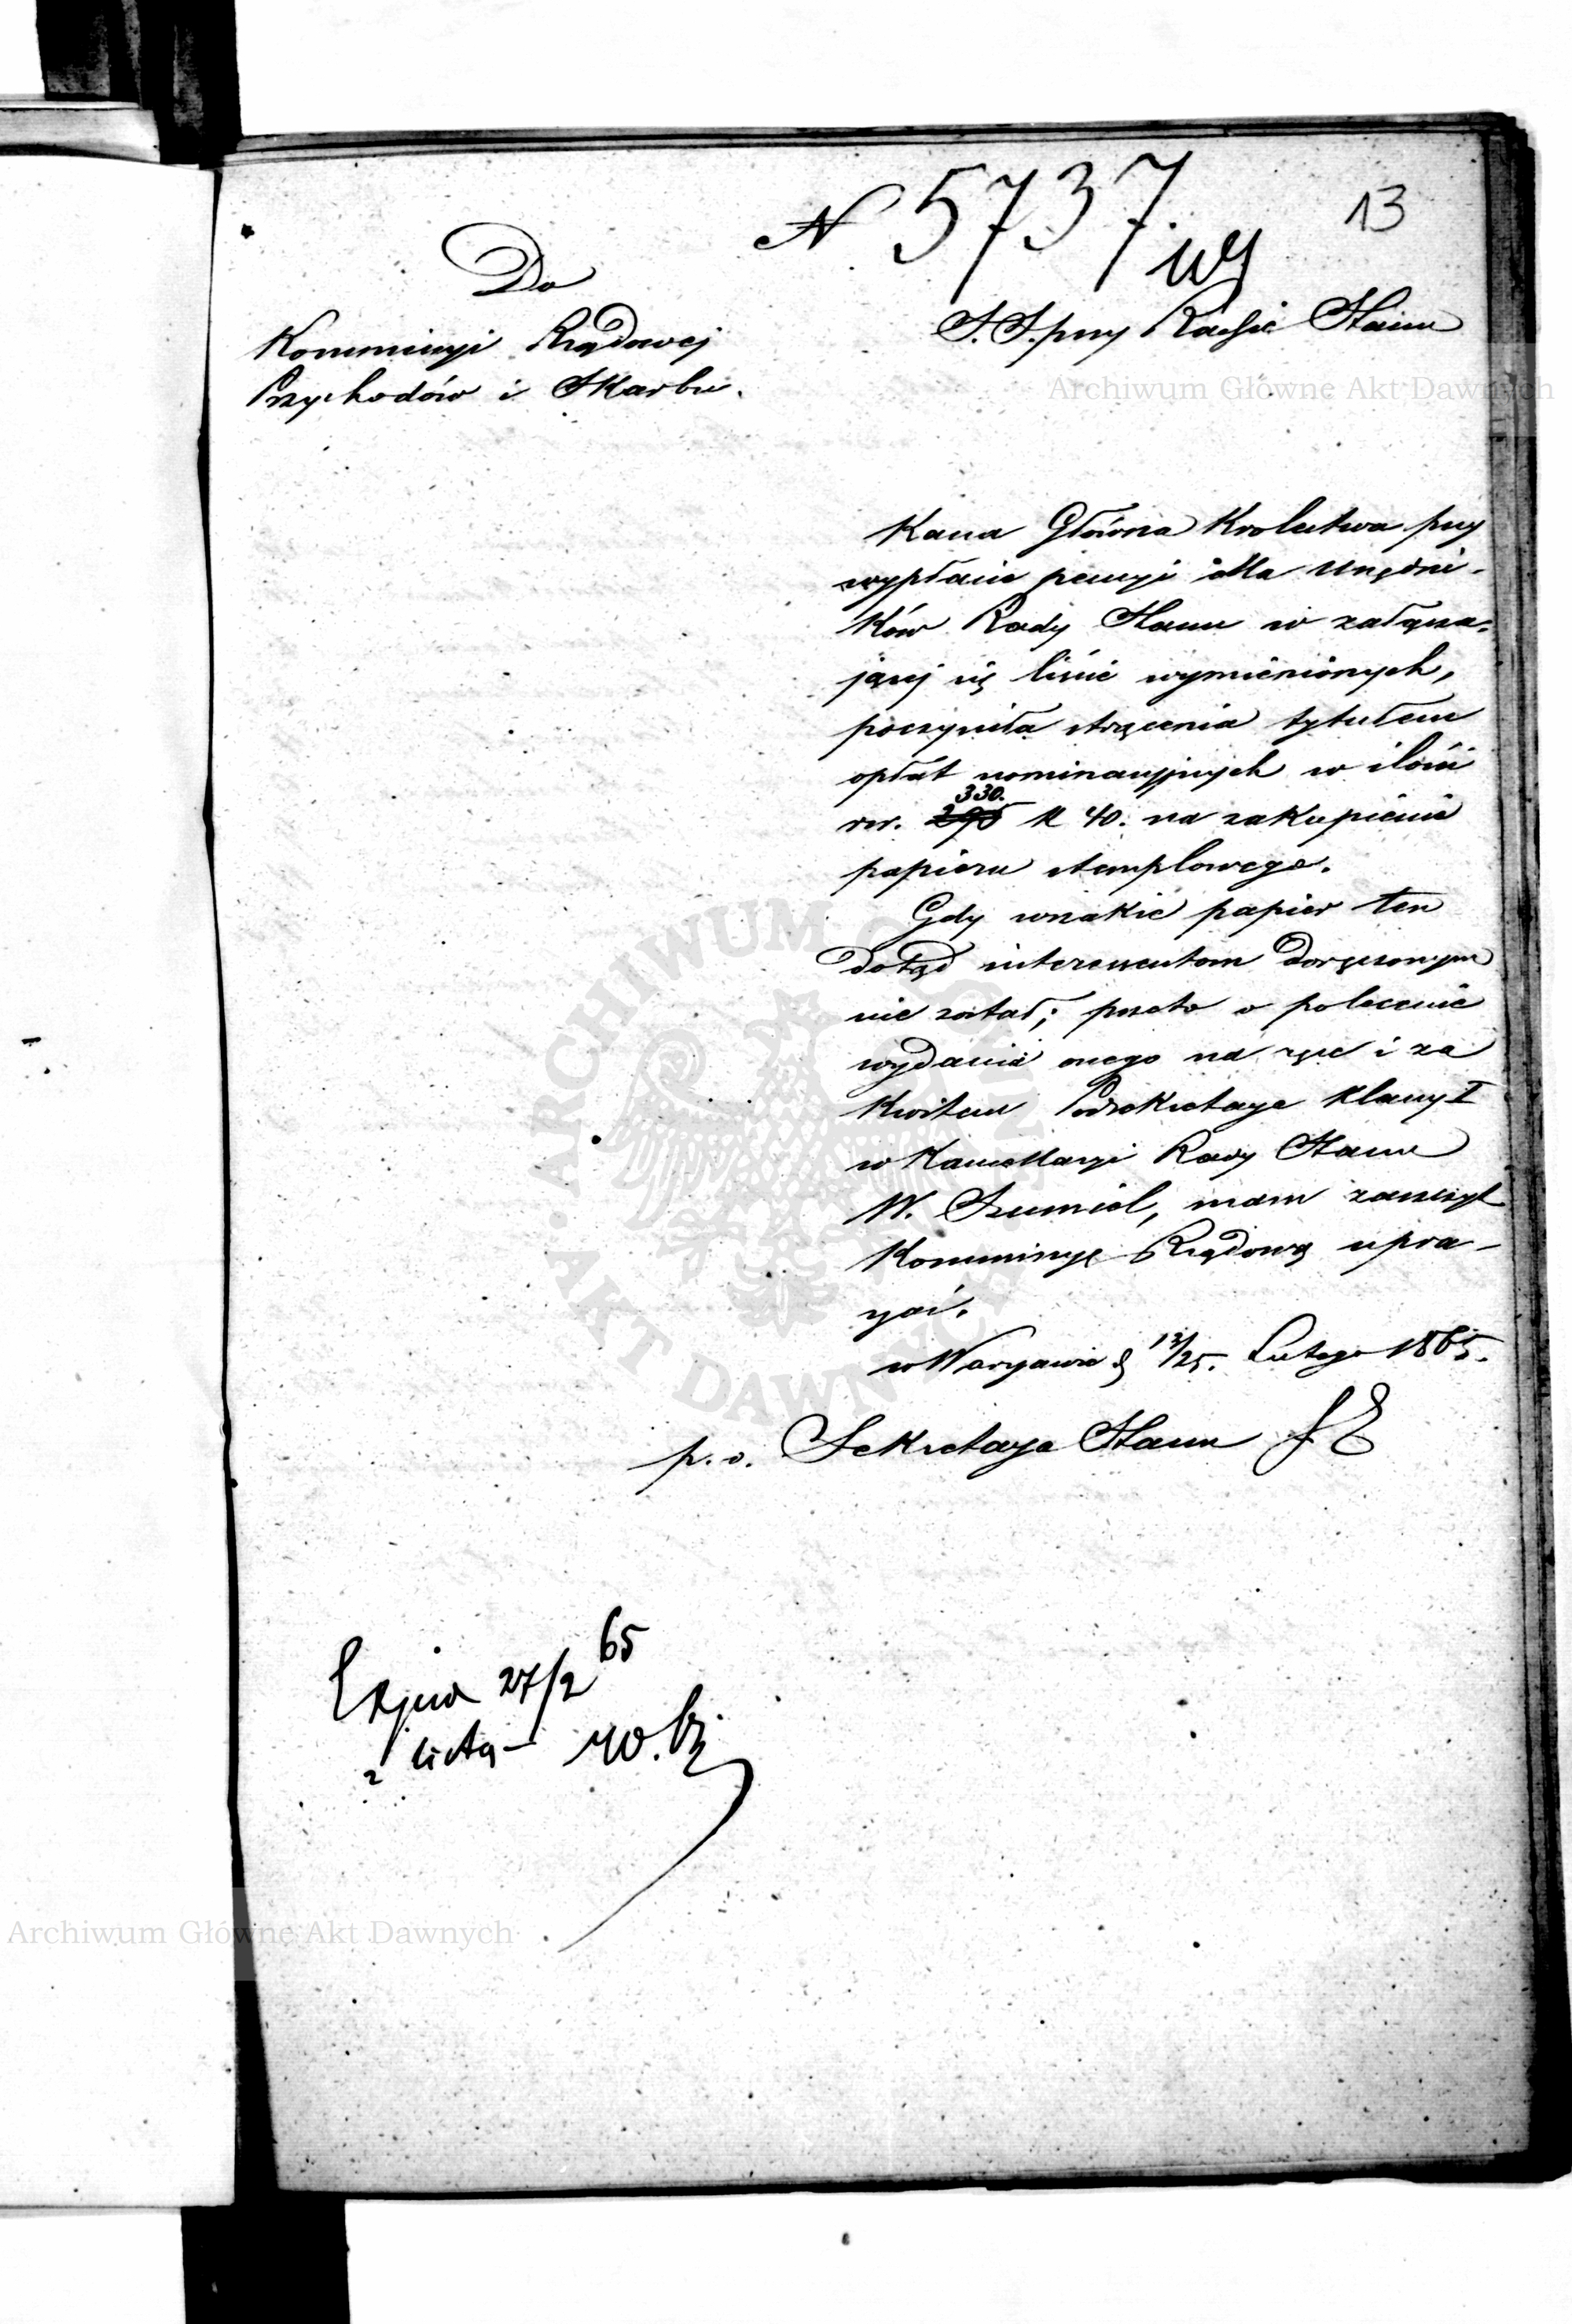 N 5737
13
Do
Kommissyi Rządowej
Przychodów i Skarbu.
S. S. przy Radzie Stanu
Archiwum Główne Akt Dawnych
Kassa Główna Krolestwa przy
wypłacie pensyi dla Urzędni-
ków Rady Stanu w załącza-
jącej się liście wymienionych,
poczyniła strącenia tytułem
opłat nominacyjnych w ilości
330.
rsr. 295 k 40. na zakupienie
papieru stemplowego.
Gdy wszakże papier ten
dotąd interessentom doręczonym
nie został; przeto o polecenie
wydania onego na ręce i za
kwitem Podsekretarza klassy I
w Kancellaryi Rady Stanu
W. Szumiel, mam zaszczyt
Kommissyę Rządową upra-
szać.
w Warszawie d 13/25. Lutego 1865.
p. o. Sekretarza Stanu
27/2 65
z listą
Archiwum Główne Akt Dawnych
ARCHIWUM GŁÓWNE AKT DAWNYCH